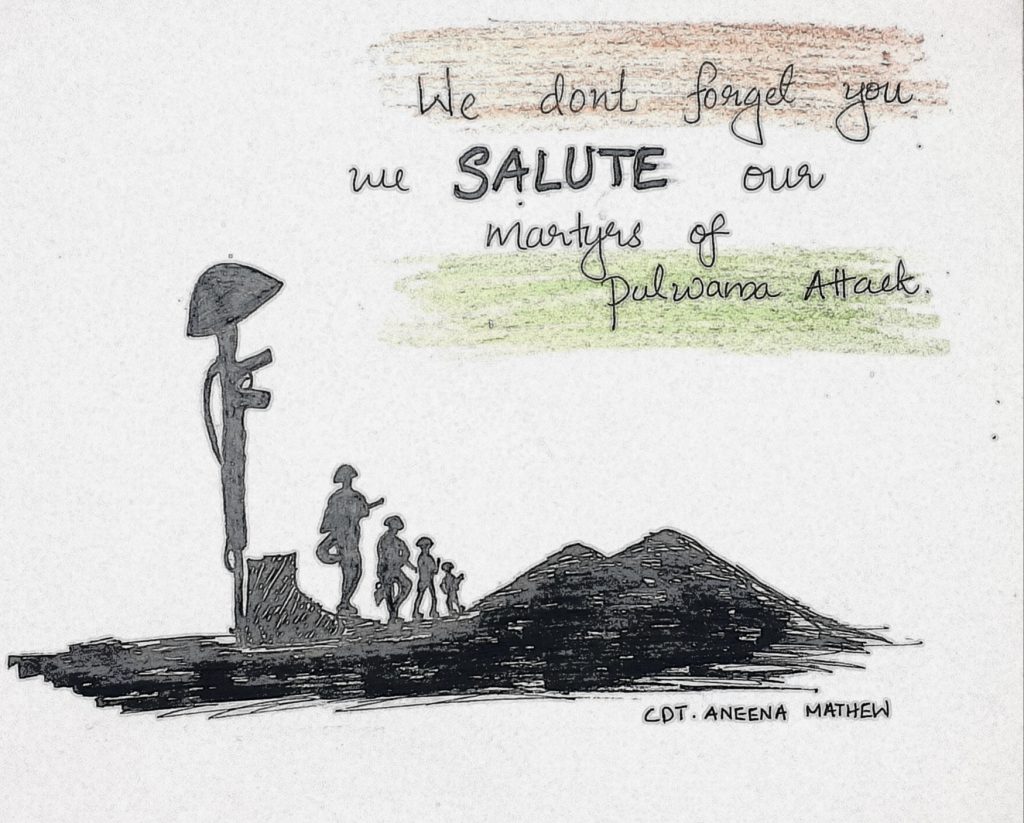 We dont forget you
we SALUTE our
martyrs of
Pulwama Attack.
CDT. ANEENA MATHEW